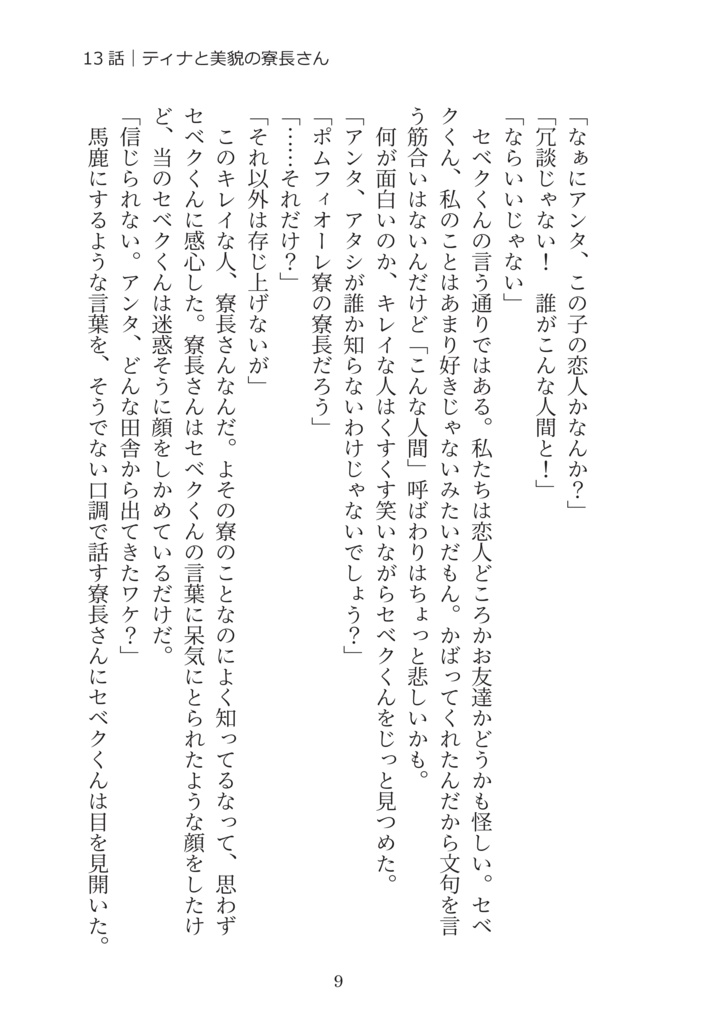 13話｜ティナと美貌の寮長さん
「なぁにアンタ、この子の恋人かなんか？」
「冗談じゃない！　誰がこんな人間と！」
「ならいいじゃない」
　セベクくんの言う通りではある。私たちは恋人どころかお友達かどうかも怪しい。セベ
クくん、私のことはあまり好きじゃないみたいだもん。かばってくれたんだから文句を言
う筋合いはないんだけど「こんな人間」呼ばわりはちょっと悲しいかも。
　何が面白いのか、キレイな人はくすくす笑いながらセベクくんをじっと見つめた。
「アンタ、アタシが誰か知らないわけじゃないでしょう？」
「ポムフィオーレ寮の寮長だろう」
「……それだけ？」
「それ以外は存じ上げないが」
　このキレイな人、寮長さんなんだ。よその寮のことなのによく知ってるなって、思わず
セベクくんに感心した。寮長さんはセベクくんの言葉に呆気にとられたような顔をしたけ
ど、当のセベクくんは迷惑そうに顔をしかめているだけだ。
「信じられない。アンタ、どんな田舎から出てきたワケ？」
　馬鹿にするような言葉を、そうでない口調で話す寮長さんにセベクくんは目を見開いた。
9